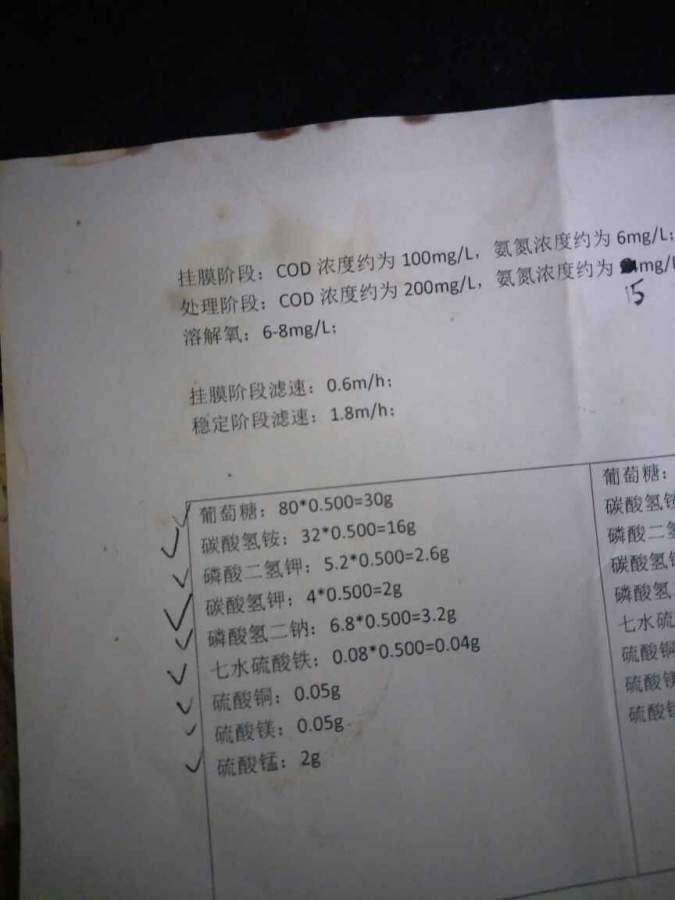 挂膜阶段：COD 浓度约为 100mg/L，氨氮浓度约为 6mg/L；
处理阶段：COD 浓度约为 200mg/L，氨氮浓度约为 mg/L
15
溶解氧：6-8mg/L；
挂膜阶段滤速：0.6m/h；
稳定阶段滤速：1.8m/h；
葡萄糖：80*0.500=30g
碳酸氢铵：32*0.500=16g
磷酸二氢钾：5.2*0.500=2.6g
碳酸氢钾：4*0.500=2g
磷酸氢二钠：6.8*0.500=3.2g
七水硫酸铁：0.08*0.500=0.04g
硫酸铜：0.05g
硫酸镁：0.05g
硫酸锰：2g
葡萄糖：
碳酸氢铵
磷酸二氢
碳酸氢钾
磷酸氢
七水硫
硫酸铜
硫酸镁
硫酸锰